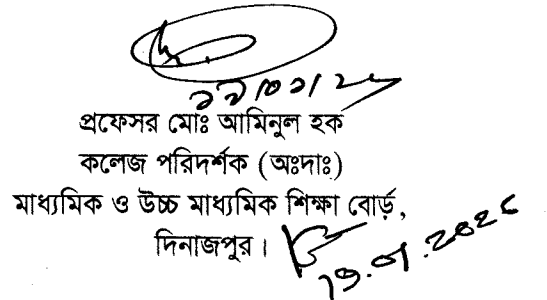 প্রফেসর মোঃ আমিনুল হক
কলেজ পরিদর্শক (অঃদাঃ)
মাধ্যমিক ও উচ্চ মাধ্যমিক শিক্ষা বোর্ড,
দিনাজপুর।